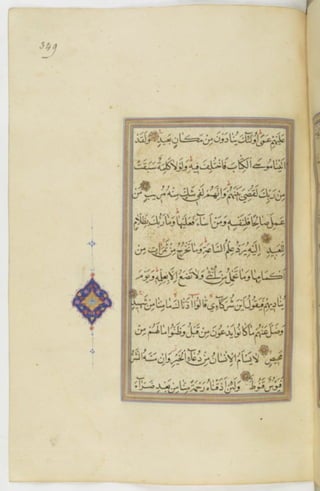 349
عَلَيْهِمْ عَمًى أُولَٰئِكَ يُنَادَوْنَ مِنْ مَكَانٍ بَعِيدٍ وَلَقَدْ
آتَيْنَا مُوسَى الْكِتَابَ فَاخْتُلِفَ فِيهِ وَلَوْلَا كَلِمَةٌ سَبَقَتْ
مِنْ رَبِّكَ لَقُضِيَ بَيْنَهُمْ وَإِنَّهُمْ لَفِي شَكٍّ مِنْهُ مُرِيبٍ مَنْ
عَمِلَ صَالِحًا فَلِنَفْسِهِ وَمَنْ أَسَاءَ فَعَلَيْهَا وَمَا رَبُّكَ بِظَلَّامٍ
لِلْعَبِيدِ إِلَيْهِ يُرَدُّ عِلْمُ السَّاعَةِ وَمَا تَخْرُجُ مِنْ ثَمَرَاتٍ مِنْ
أَكْمَامِهَا وَمَا تَحْمِلُ مِنْ أُنْثَى وَلَا تَضَعُ إِلَّا بِعِلْمِهِ وَيَوْمَ
يُنَادِيهِمْ فَيَقُولُ أَيْنَ شُرَكَائِي قَالُوا آذَنَّاكَ مَا مِنَّا مِنْ شَهِيدٍ
وَضَلَّ عَنْهُمْ مَا كَانُوا يَدْعُونَ مِنْ قَبْلُ وَظَنُّوا مَا لَهُمْ مِنْ
مَحِيصٍ لَا يَسْأَمُ الْإِنْسَانُ مِنْ دُعَاءِ الْخَيْرِ وَإِنْ مَسَّهُ الشَّرُّ
فَيَئُوسٌ قَنُوطٌ وَلَئِنْ أَذَقْنَاهُ رَحْمَةً مِنَّا مِنْ بَعْدِ ضَرَّاءَ